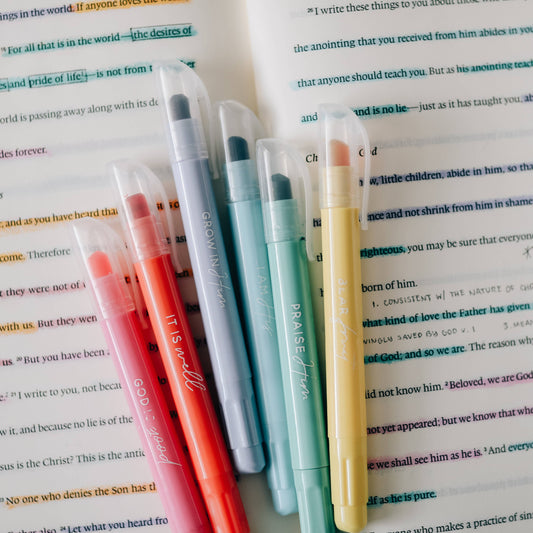 ings in the world. If anyone loves the wor
16 For all that is in the world—the desires of
es and pride of life—is not from t
orld is passing away along with its de
des forever.
and as you have heard that
come. Therefore
they were not of
with us. But they went
us. 20 But you have been
I write to you, not becau
w it, and because no lie is of the
sus is the Christ? This is the antic
No one who denies the Son has th
24 Let what you heard from
26 I write these things to you about those who
the anointing that you received from him abides in you
that anyone should teach you. But as his anointing teac
and is no lie—just as it has taught you, ab
Chi God
ow, little children, abide in him, so tha
ence and not shrink from him in shame
righteous, you may be sure that everyone
born of him.
1. CONSISTENT W/ THE NATURE OF
what kind of love the Father has given
SAVED BY GOD V. 1 3. MEA
of God; and so we are. The reason why
did not know him. 2 Beloved, we are God
not yet appeared; but we know that whe
we shall see him as he is. 3 And everyo
as he is pure.
who makes a practice of sin
GOD IS good
IT IS well
GROW IN Him
I AM His
PRAISE Him